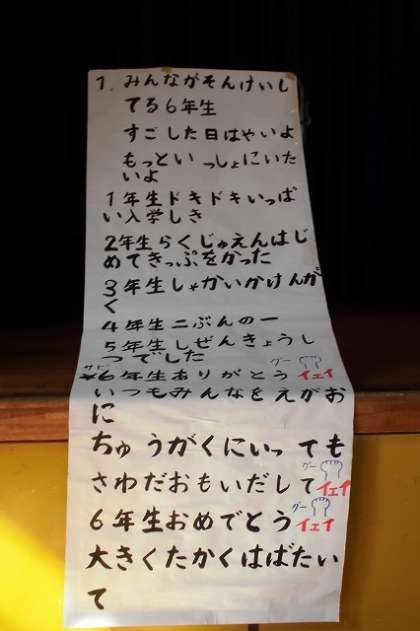 1. みんながそんけいし
てる6年生
すごした日はやいよ
もっといっしょにいた
いよ
1年生ドキドキいっぱ
い入学しき
2年生らくじゅえんはじ
めてきっぷをかった
3年生しゃかいかけんが
く
4年生二ぶんの一
5年生しぜんきょうし
つでした
サビ グー
*6年生ありがとう イェイ
いつもみんなをえがお
に
ちゅうがくにいっても
グー
さわだおもいだして イェイ
グー
6年生おめでとう イェイ
大きくたかくはばたい
て